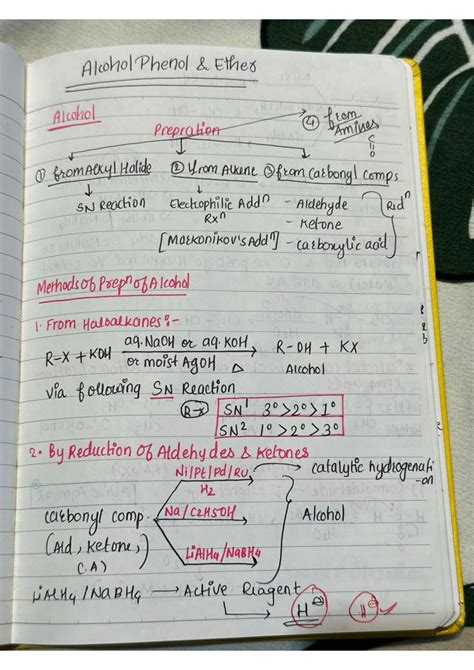 Alcohol Phenol & Ether
Alcohol
Prepration
④ from Amines
C=O
① from Alkyl Halide ② from Alkene ③ from Carbonyl comps
SN Reaction Electophilic Addⁿ - Aldehyde Redⁿ
Rxⁿ - Ketone
[Markonikov's Addⁿ] - carboxylic acid
Methods of Prepⁿ of Alcohol
1. From Haloalkanes:-
R-X + KOH aq. NaOH or aq. KOH or moist AgOH △ R-OH + KX
Alcohol
via following SN Reaction
R-X SN¹ 3°>2°>1°
SN² 1°>2°>3°
2. By Reduction of Aldehydes & Ketones
Ni/Pt/Pd/Ru catalytic hydrogenati-on
H₂
Carbonyl comp. Na/C₂H₅OH Alcohol
(Ald, Ketone,
C.A)
LiAlH₄/NaBH₄
LiAlH₄/NaBH₄ → Active Reagent
H⊖ H⊖